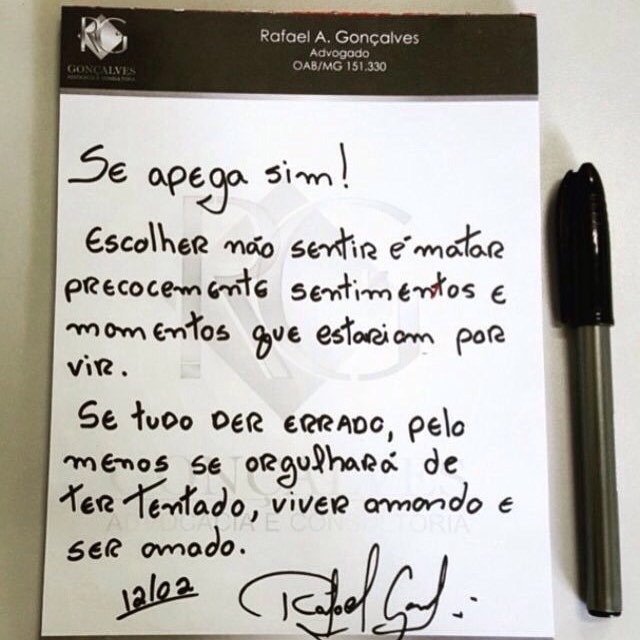 RG
GONÇALVES
ADVOCACIA E CONSULTORIA
Rafael A. Gonçalves
Advogado
OAB/MG 151.330
Se apega sim!
Escolher não sentir é matar
precocemente sentimentos e
momentos que estariam por
vir.
Se tudo der errado, pelo
menos se orgulhará de
ter tentado, viver amando e
ser amado.
12/02
Rafael Gon
RG
GONÇALVES
ADVOCACIA E CONSULTORIA